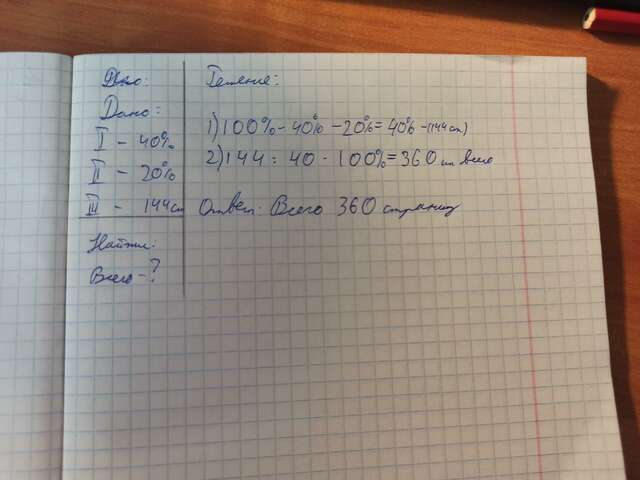 Дано:
I - 40%
II - 20%
III - 144 ст
Найти:
Всего - ?
Решение:
1) 100% - 40% - 20% = 40% - (144 ст.)
2) 144 : 40 · 100% = 360 ст всего
Ответ: Всего 360 страниц